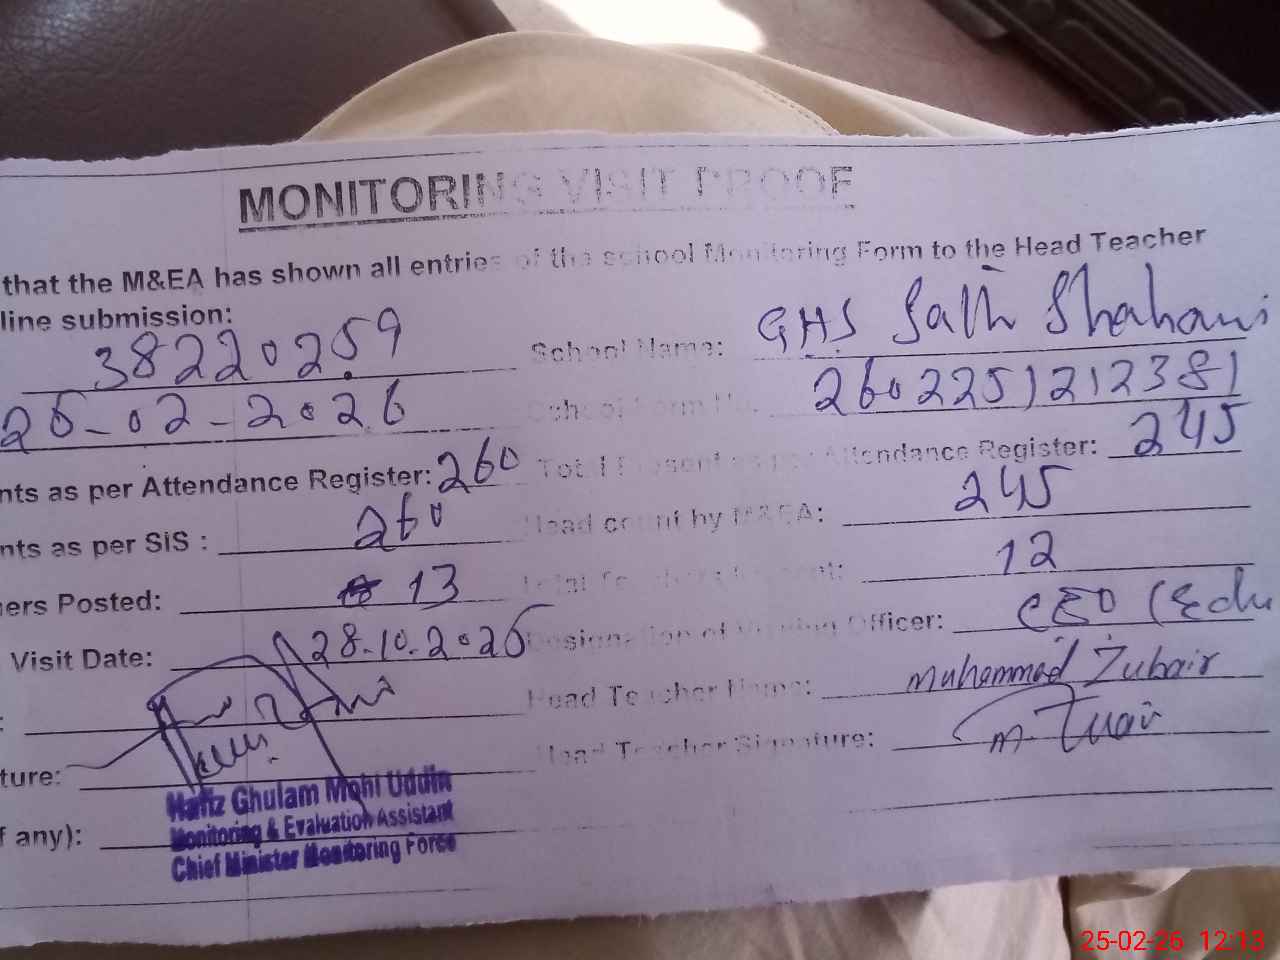 MONITORING VISIT PROOF
that the M&EA has shown all entries of the school Monitoring Form to the Head Teacher
line submission:
38220259 School Name: GHS Jalth Shahani
25-02-2026 School Form No. 2602251212381
nts as per Attendance Register: 260 Total Present as per Attendance Register: 245
nts as per SIS : 260 Head count by M&EA: 245
ers Posted: 13 Total Teachers Present: 12
Visit Date: 28.10.2025 Designation of Visiting Officer: CEO (Edu
: Head Teacher Name: Muhammad Zubair
ture: Head Teacher Signature:
Hafiz Ghulam Mohi Uddin
f any): Monitoring & Evaluation Assistant
Chief Minister Monitoring Force
25-02-26 12:13